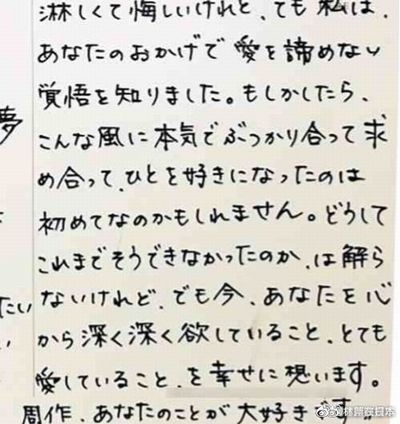 淋しくて悔しいけれど、でも私は、
あなたのおかげで愛を諦めない
覚悟を知りました。もしかしたら、
こんな風に本気でぶつかり合って求
め合って、ひとを好きになったのは
初めてなのかもしれません。どうして
これまでそうできなかったのか、は解ら
ないけれど、でも今、あなたを心
から深く深く欲していること、とても
愛していること、を幸せに想います。
周作、あなたのことが大好きです。
夢
たい
@林萍在日本